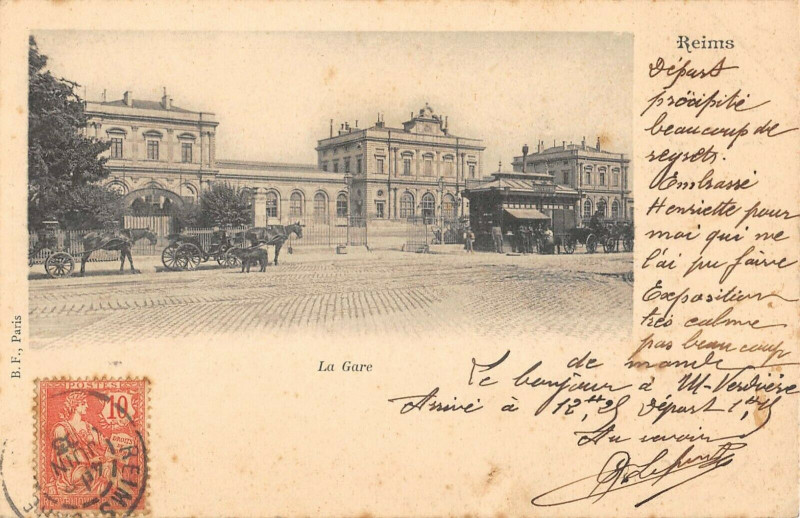 Reims
Départ
précipité
beaucoup de
regrets.
Embrassé
Henriette pour
moi qui ne
l'ai pu faire
Exposition
très calme
pas beaucoup
de monde
bonjour à M-Verdière
Arrivé à 12,25 Départ
Au revoir
La Gare
B. F., Paris
POSTES
10
REIMS
JUIN